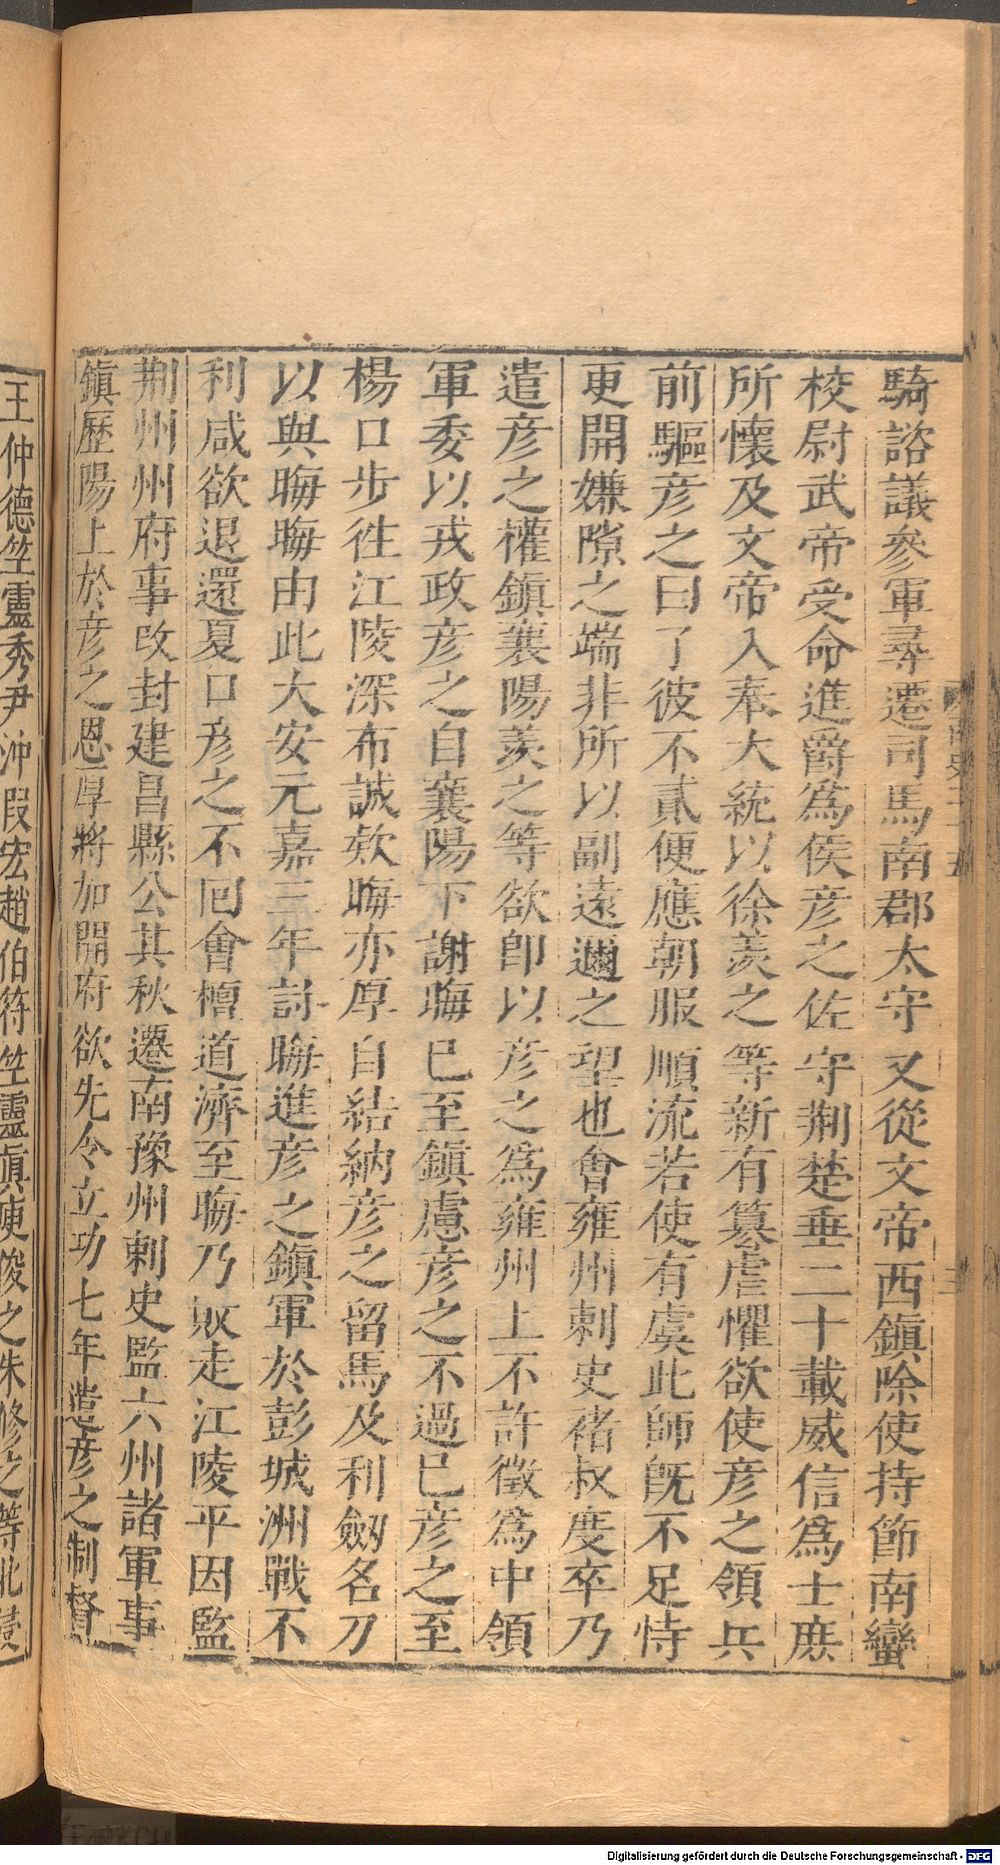 騎諮議參軍尋遷司馬南郡太守又從文帝西鎮除使持節南蠻
校尉武帝受命進爵為侯彥之佐守荊楚垂二十載威信為士庶
所懷及文帝入奉大統以徐羨之等新有篡虐懼欲使彥之領兵
前驅彥之曰了彼不貳便應朝服順流若使有虞此師旣不足恃
更開嫌隙之端非所以副遠邇之望也會雍州刺史褚叔度卒乃
遣彥之權鎮襄陽羨之等欲即以彥之為雍州上不許徵為中領
軍委以戎政彥之自襄陽下謝晦巳至鎮慮彥之不過巳彥之至
楊口步往江陵深布誠欵晦亦厚自結納彥之留馬及利劒名刀
以與晦晦由此大安元嘉三年討晦進彥之鎮軍於彭城洲戰不
利咸欲退還夏口彥之不囘會檀道濟至晦乃敗走江陵平因監
荊州州府事改封建昌縣公其秋遷南豫州刺史監六州諸軍事
鎮歷陽上於彥之恩厚將加開府欲先令立功七年遣彥之制督
王仲德竺靈秀尹沖叚宏趙伯符竺靈真庾俊之朱修之等北侵
Digitalisierung gefördert durch die Deutsche Forschungsgemeinschaft - DFG